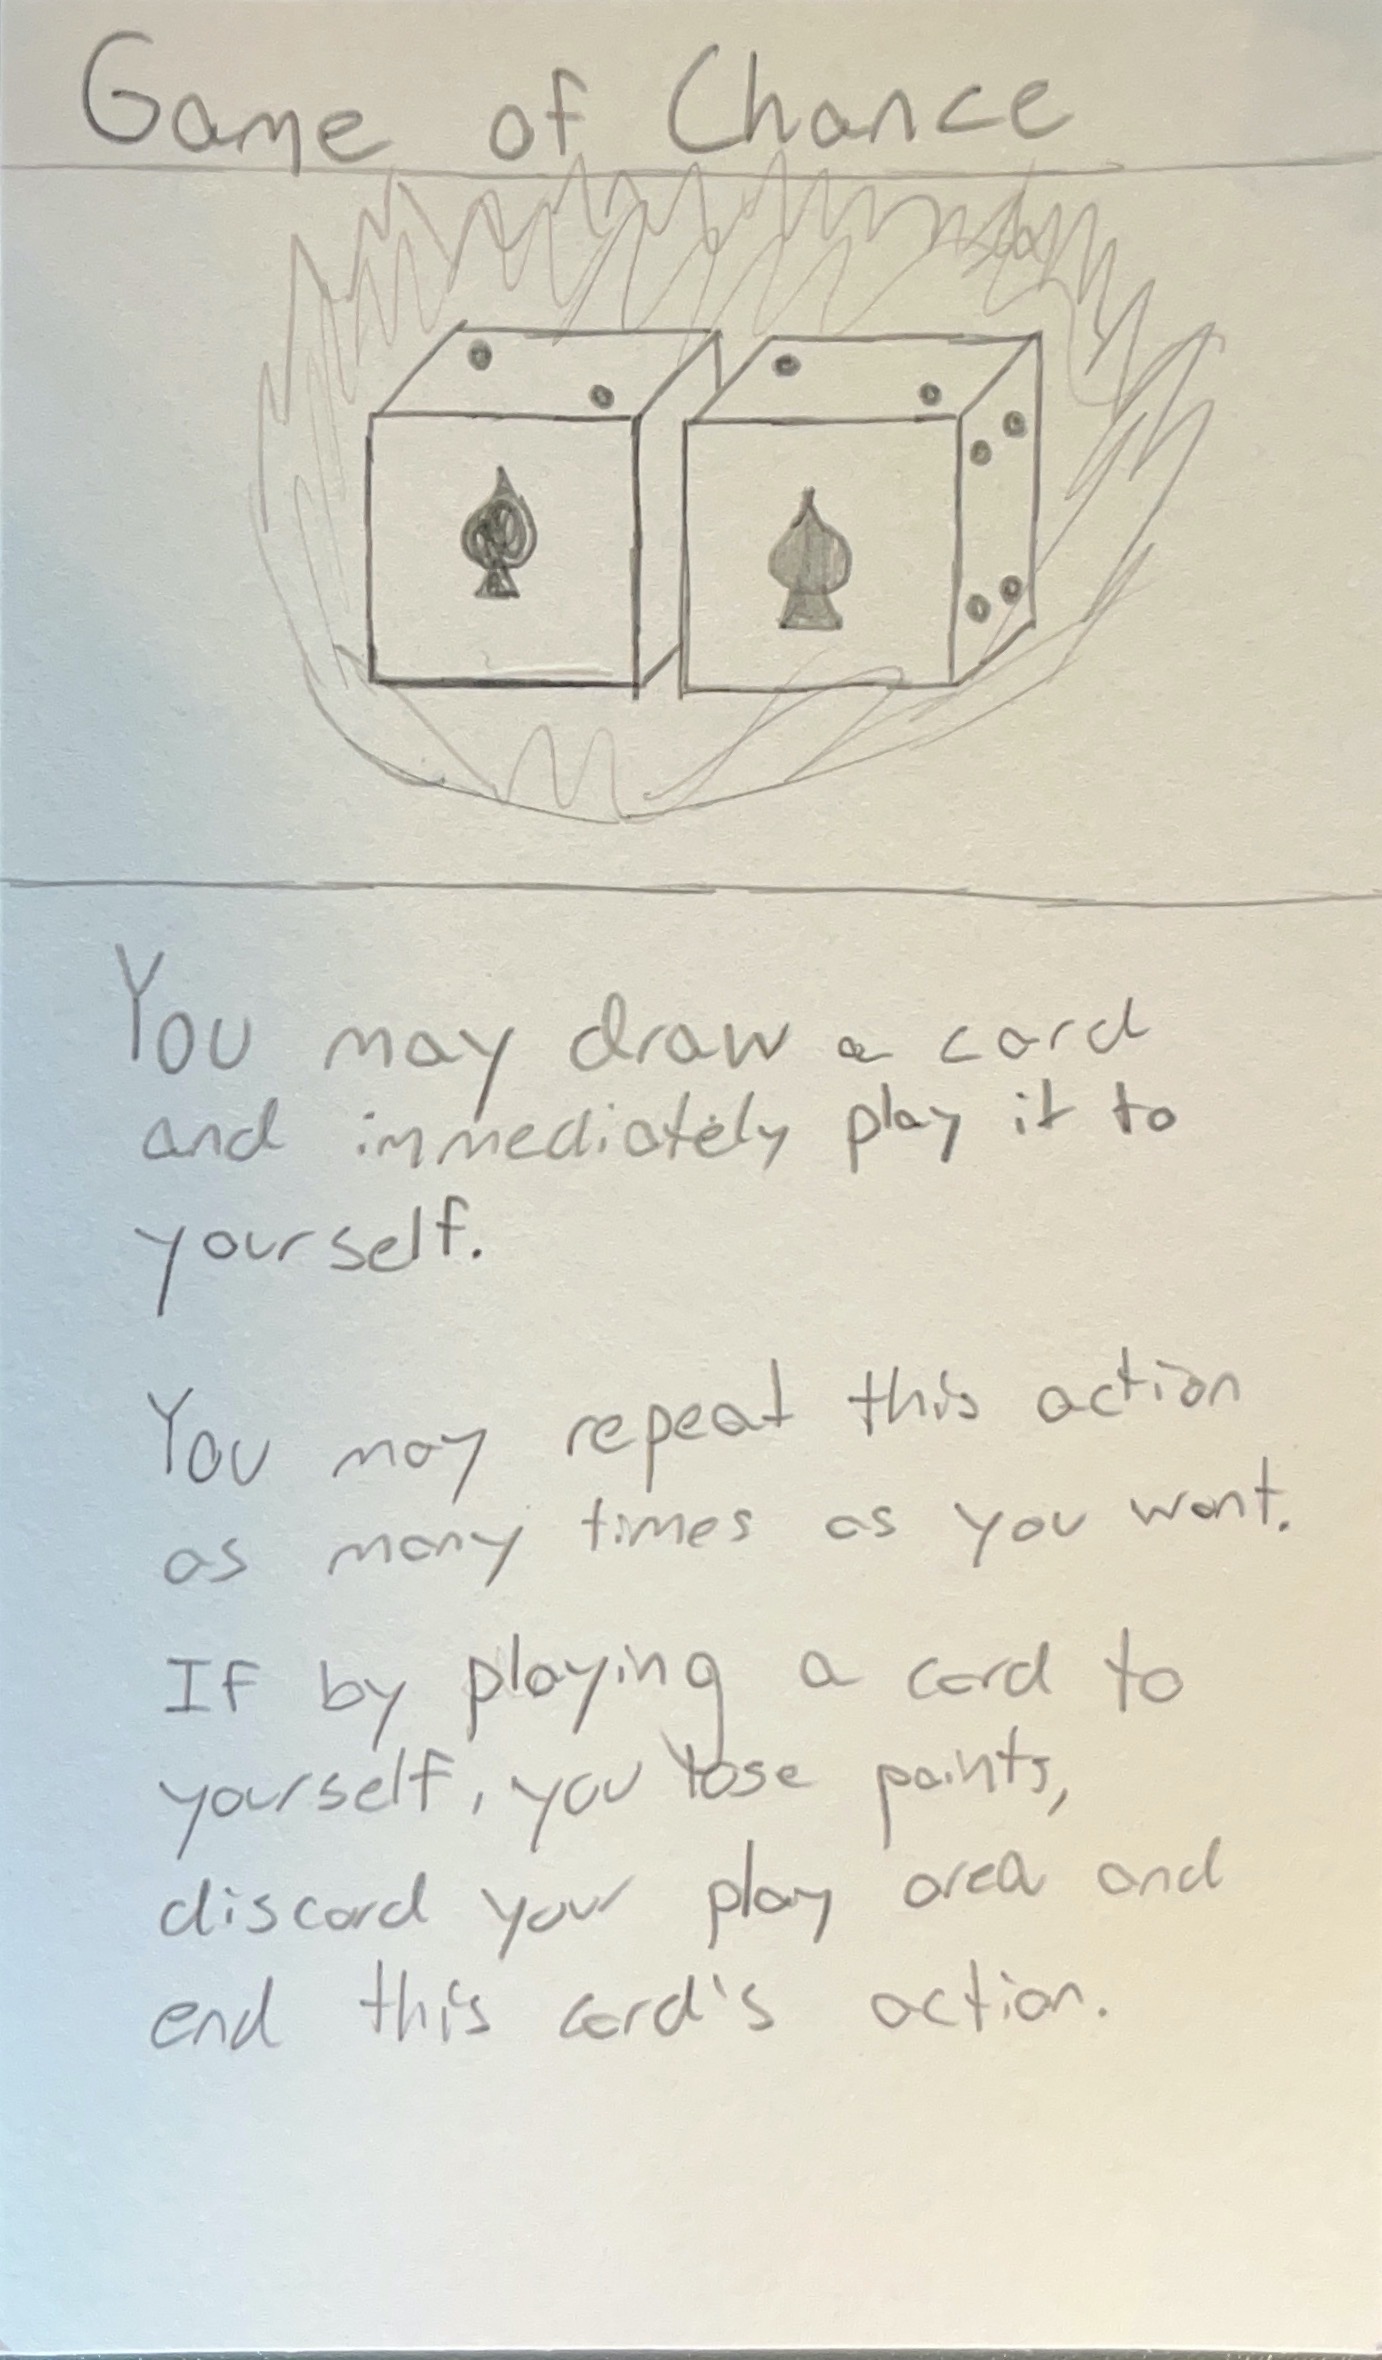 Game of Chance
You may draw a card
and immediately play it to
yourself.
You may repeat this action
as many times as you want.
If by playing a card to
yourself, you lose points,
discard your play area and
end this card's action.